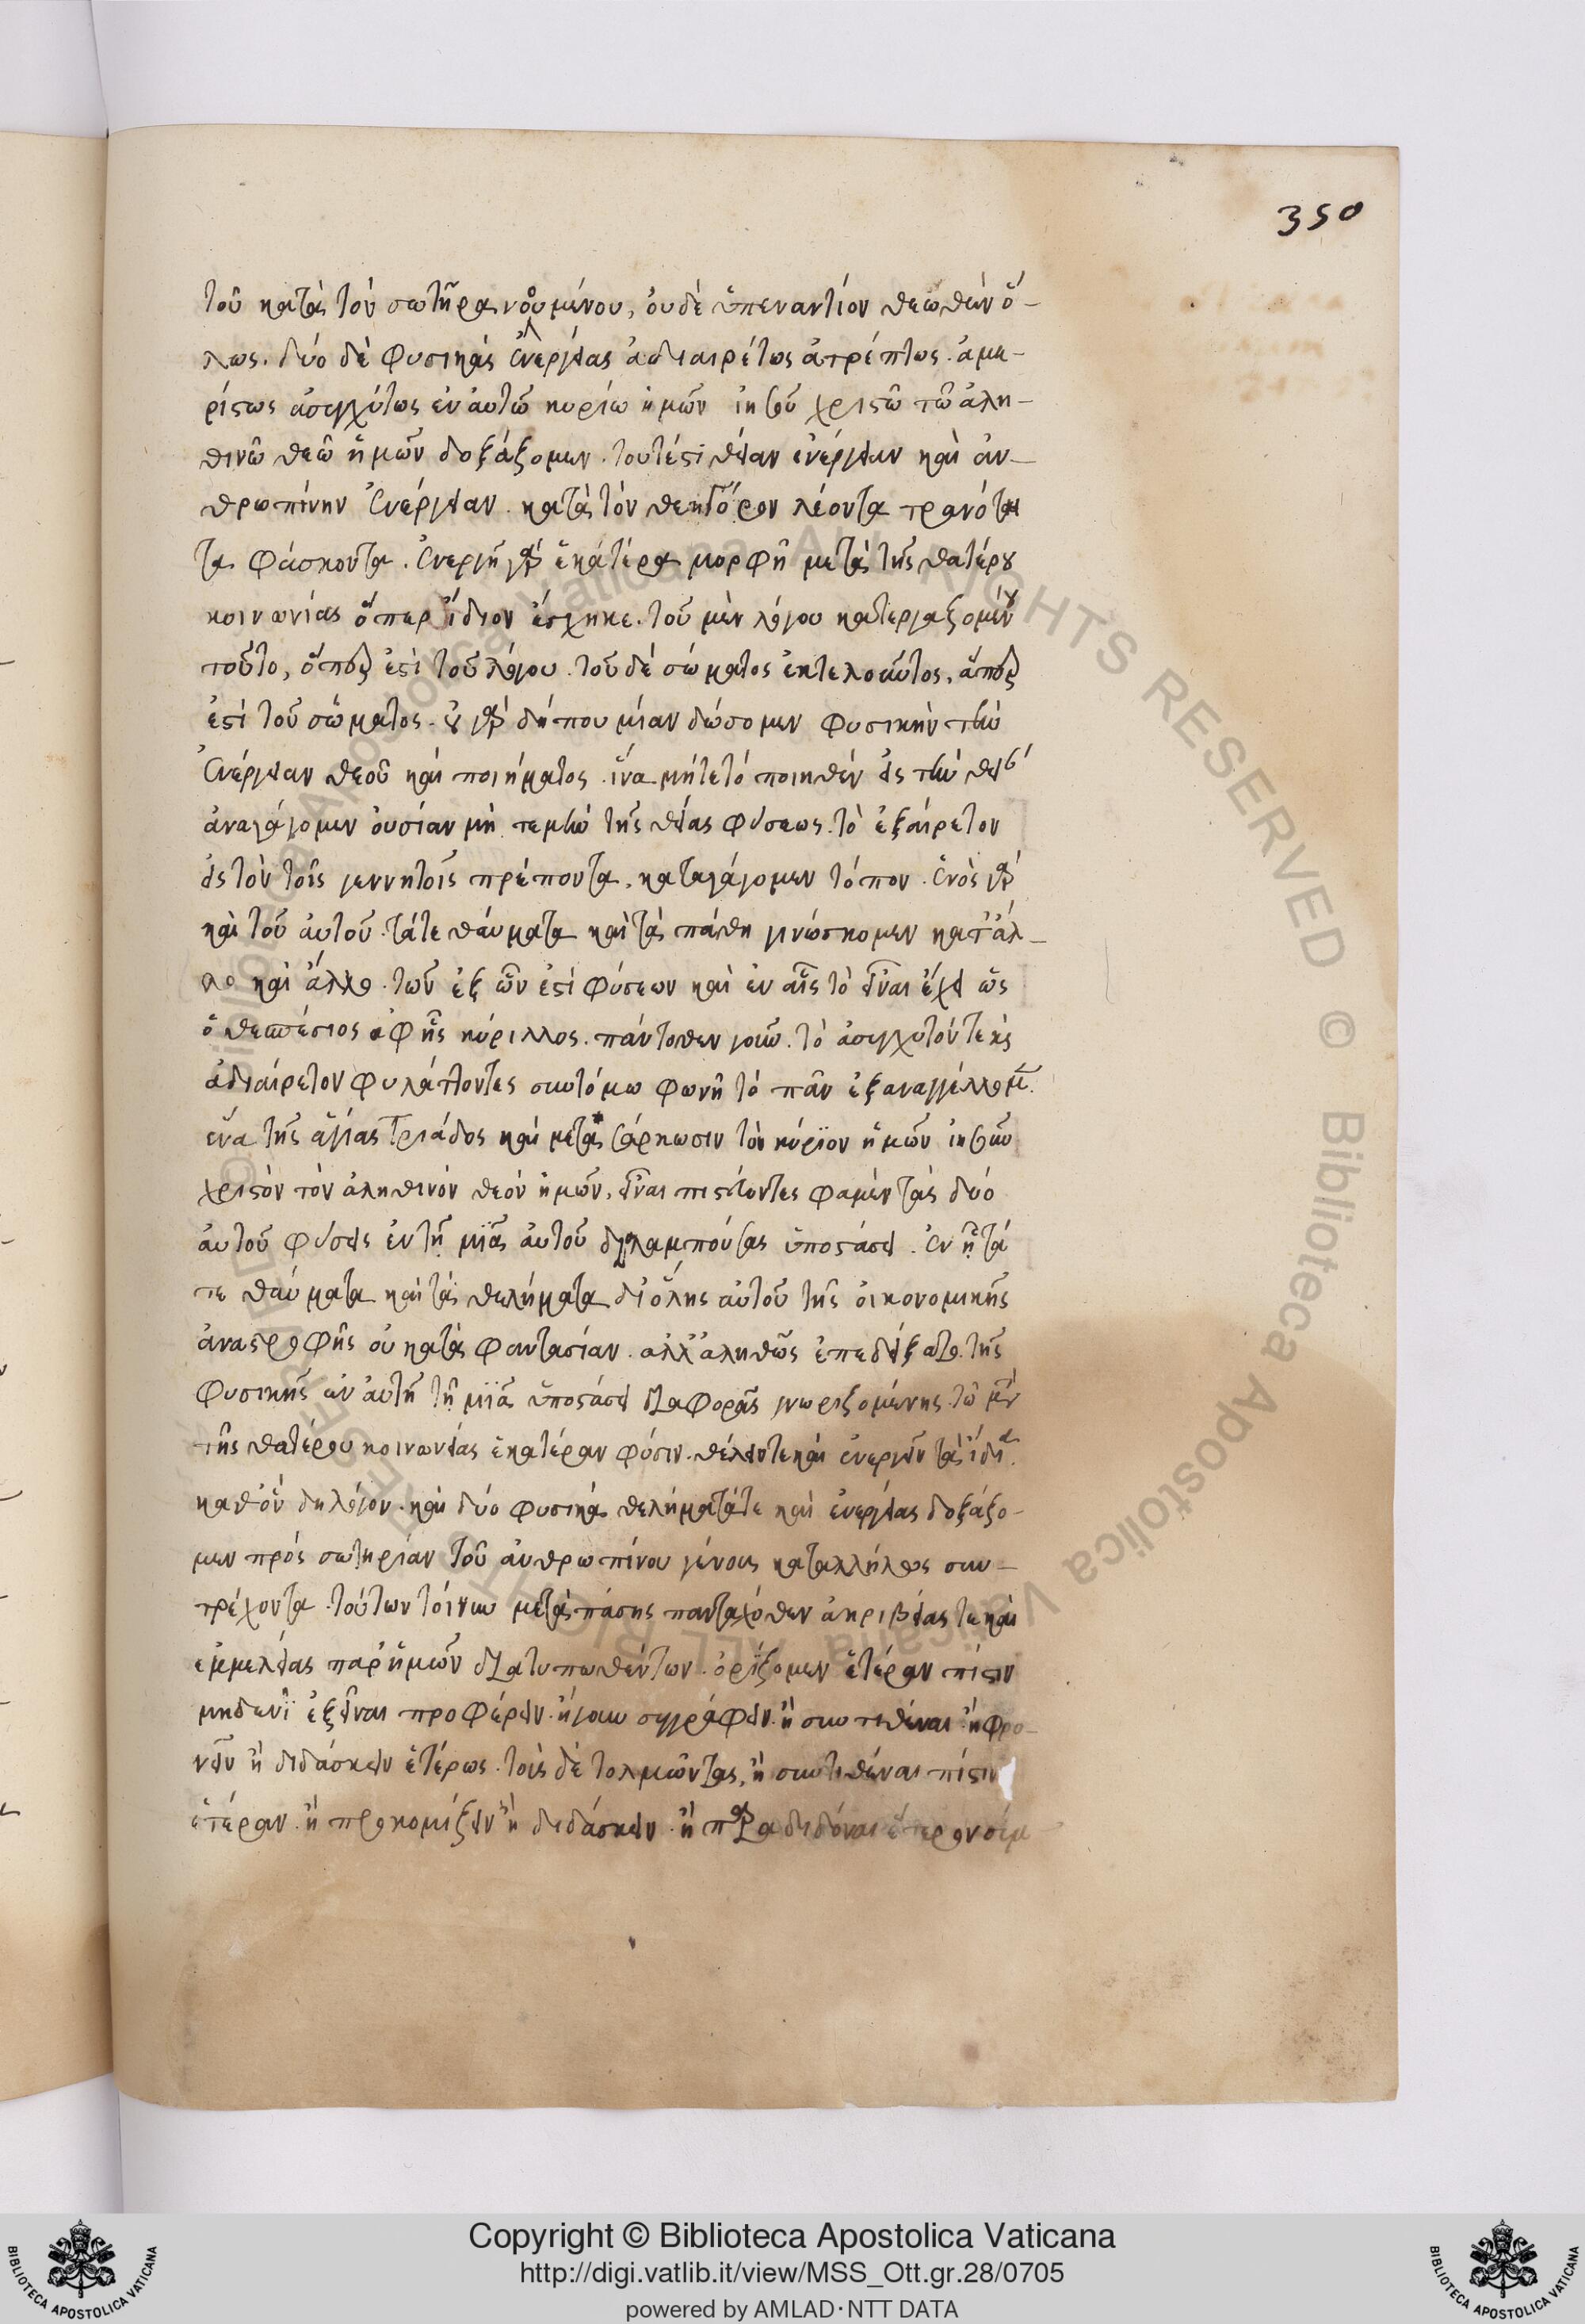 350
τοῦ κατὰ τὸν σωτῆρα νοουμένου, οὐδὲ ὑπεναντίον θεωθὲν ὅ-
λως. δύο δὲ φυσικὰς ἐνεργείας ἀδιαιρέτως ἀτρέπτως. ἀμε-
ρίστως ἀσυγχύτως ἐν αὐτῶ κυρίω ἡμῶν ἰησοῦ χριστῶ τῶ ἀλη-
θινῶ θεῶ ἡμῶν δοξάζομεν. τουτέστι θείαν ἐνέργειαν καὶ ἀν-
θρωπίνην ἐνέργειαν. κατὰ τὸν θεηγόρον λέοντα τρανότα
τα φάσκοντα. ἐνεργεῖ γὰρ ἑκατέρα μορφὴ μετὰ τῆς θατέρου
κοινωνίας ὅπερ ἴδιον ἔσχηκε. τοῦ μὲν λόγου κατεργαζομένου
τοῦτο, ὅπερ ἐστὶ τοῦ λόγου. τοῦ δὲ σώματος ἐκτελοῦντος, ἅπερ
ἐστὶ τοῦ σώματος. οὐ γὰρ δήπου μίαν δώσομεν φυσικὴν τὴν
ἐνέργειαν θεοῦ καὶ ποιήματος. ἵνα μήτε τὸ ποιηθὲν εἰς τὴν θείαν
ἀναγάγομεν οὐσίαν μὴ τε μὴν τῆς θείας φύσεως. τὸ ἐξαίρετον
εἰς τὸν τοῖς γεννητοῖς πρέποντα, καταγάγομεν τόπον. ἑνὸς γὰρ
καὶ τοῦ αὐτοῦ. τά τε θαύματα καὶ τὰ πάθη γινώσκομεν κατ' ἄλ-
λο καὶ ἄλλο. τῶν ἐξ ὧν ἐστὶ φύσεων καὶ ἐν αἷς τὸ εἶναι ἔχει ὡς
ὁ θεσπέσιος ἔφησε κύριλλος. πάντοθεν γοῦν. τὸ ἀσυγχυτόν τε καὶ
ἀδιαίρετον φυλάττοντες συντόμω φωνῆ τὸ πᾶν ἐξαναγγέλλομεν.
ἕνα τῆς ἁγίας τριάδος καὶ μετὰ σάρκωσιν τὸν κύριον ἡμῶν ἰησοῦν
χριστὸν τὸν ἀληθινὸν θεὸν ἡμῶν, εἶναι πιστεύοντες φαμὲν τὰς δύο
αὐτοῦ φύσεις ἐν τῇ μιᾶ αὐτοῦ διαλαμπούσας ὑποστάσει. ἐν ᾗ τά
τε θαύματα καὶ τὰ θελήματα δι' ὅλης αὐτοῦ τῆς οἰκονομικῆς
ἀναστροφῆς οὐ κατὰ φαντασίαν. ἀλλ' ἀληθῶς ἐπεδείξατο. τῆς
φυσικῆς ἐν αὐτῇ τῇ μιᾶ ὑποστάσει διαφορᾶς γνωριζομένης. τῶ μὲν
τῆς θατέρου κοινωνίας ἑκατέραν φύσιν. θέλειν τε καὶ ἐνεργεῖν τὰ ἴδια.
καθ' ὃν δὴ λόγον. καὶ δύο φυσικὰ θελήματά τε καὶ ἐνεργείας δοξάζο-
μεν πρὸς σωτηρίαν τοῦ ἀνθρωπίνου γένους καταλλήλως συν-
τρέχοντα. τούτων τοίνυν μετὰ πάσης πανταχόθεν ἀκριβείας τε καὶ
ἐμμελείας παρ' ἡμῶν διατυπωθέντων. ὁρίζομεν ἑτέραν πίστιν
μηδενὶ ἐξεῖναι προφέρειν. ἤγουν συγγράφειν. ἢ συντιθέναι. ἢ φρο-
νεῖν ἢ διδάσκειν ἑτέρως. τοὺς δὲ τολμῶντας, ἢ συντιθέναι πίστιν
ἑτέραν. ἢ προκομίζειν ἢ διδάσκειν. ἢ παραδιδόναι ἕτερον σύμ
Copyright © Biblioteca Apostolica Vaticana
http://digi.vatlib.it/view/MSS_Ott.gr.28/0705
powered by AMLAD·NTT DATA